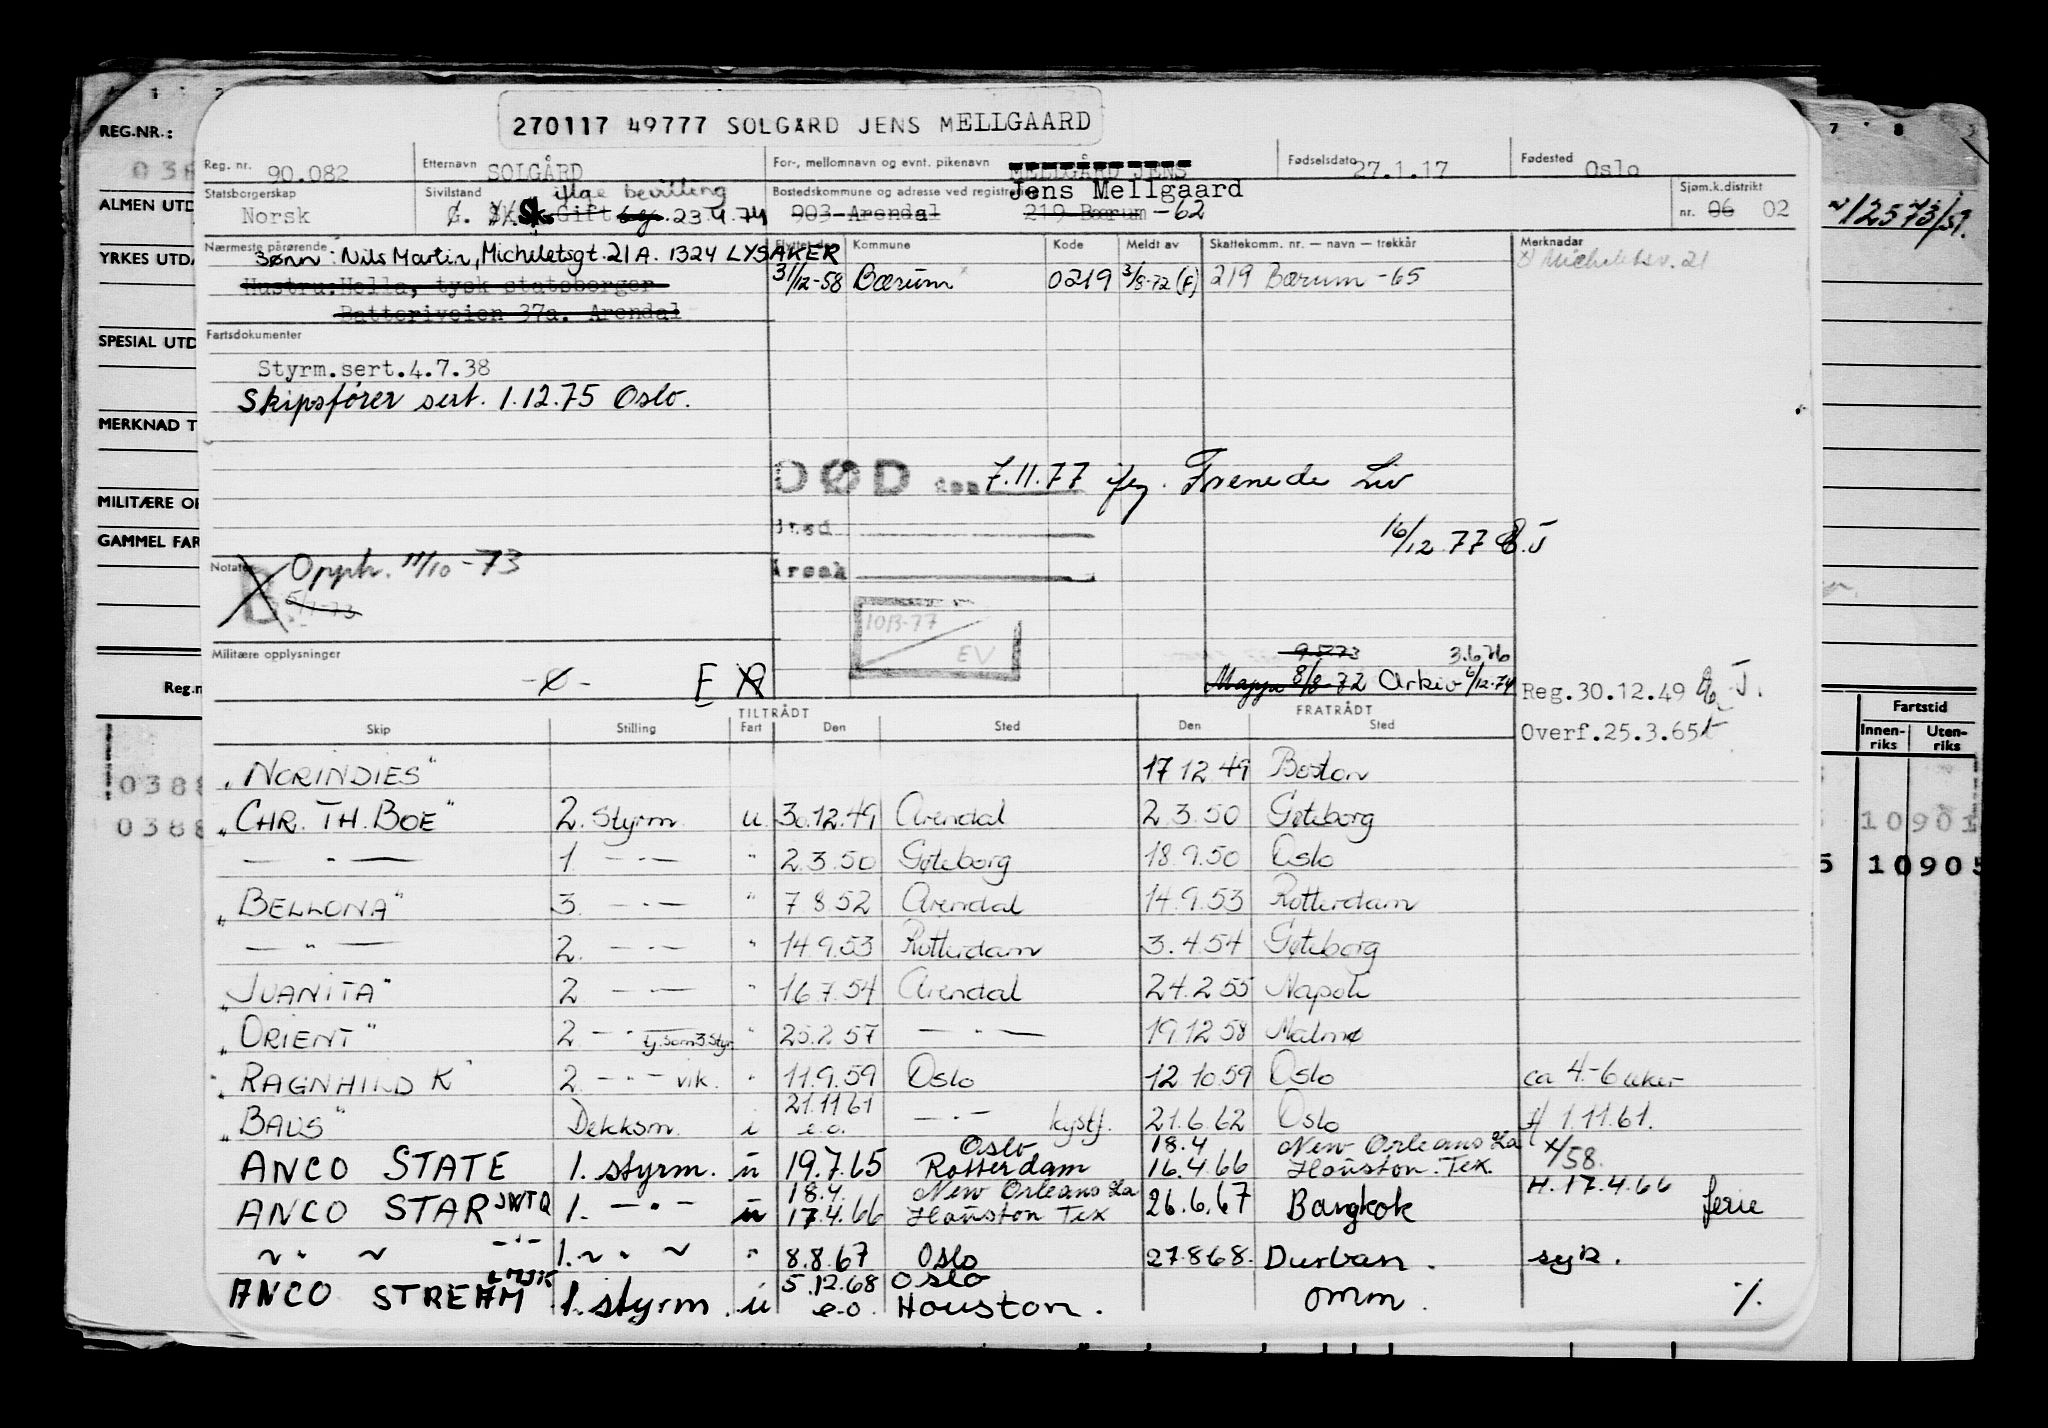 270117 49777 SOLGÅRD JENS MELLGAARD
REG.NR.:
Reg. nr. 90.082 Etternavn SOLGÅRD For-, mellomnavn og evnt. pikenavn MELLGÅRD JENS Fødselsdato 27.1.17 Fødested Oslo
Jens Mellgaard
ALMEN UTD
Statsborgerskap Norsk Sivilstand ifge bevilling Gift 23.4.74 Bostedskommune og adresse ved registr 903 Arendal 219 Bærum -62 Sjøm.k.distrikt nr. 06 02
YRKES UTDA
Nærmeste pårørende Sønn: Nils Martin, Micheletsgt. 21A. 1324 LYSAKER
Kommune Kode Meldt av Skattekomm. nr. — navn — trekkår Merknadar
Micheletsv. 21
Hustru: Hella, tysk statsborger
31/12-58 Bærum 0219 3/8-72 (F) 219 Bærum -65
Batteriveien 37a. Arendal
SPESIAL UTD
Fartsdokumenter
Styrm.sert.4.7.38
Skipsfører sert. 1.12.75 Oslo.
MERKNAD T
MILITÆRE OP
GAMMEL FAR
DØD den 7.11.77 ifg. Frenede Liv
Sted
16/12 77 E.J
Årsak
Notater Opph. 11/10-73
5/7-73
10B-77
EV
Militære opplysninger
-0- F
9.5.73 3.6.76
Mappe 8/8-72 Arkiv 6/12-74
Reg.30.12.49
Overf.25.3.65
Reg.n
Fartstid
Innen-riks Uten-riks
TILTRÅDT FRATRÅDT
Skip Stilling Fart Den Sted Den Sted
"NORINDIES" 17 12 49 Boston
"CHR. TH. BOE" 2. Styrm. u 30.12.49 Arendal 2.3.50 Gøteborg
— " — 1 — " — " 2.3.50 Gøteborg 18.9.50 Oslo
"BELLONA" 3. — " — " 7 8 52 Arendal 14.9.53 Rotterdam
— " — 2. — " — " 14.9.53 Rotterdam 3.4.54 Gøteborg
"JUANITA" 2 — " — " 16.7.54 Arendal 24.2.55 Napoli
"ORIENT" 2 — " — tj.som 3.Styr. " 25.2.57 — " — 19.12.58 Malmø
"RAGNHILD K" 2. — " — vik. " 11.9.59 Oslo 12 10.59 Oslo ca 4-6 uker
"BAUS" Dekksm. i 21.11 61 e.o. — " — kystf. 21.6.62 Oslo H 1.11.61.
ANCO STATE 1. styrm. u 19.7.65 Oslo Rotterdam 18.4 16.4.66 New Orleans La Houston. Tex. x/58.
ANCO STAR JWTQ 1. — " — u 18.4. 17.4.66 New Orleans La Houston Tex 26.6.67 Bangkok H. 17.4.66 ferie
~ " ~ - " - 1. ~ " ~ " 8.8.67 Oslo 27.8 68. Durban. syk.
ANCO STREAM LMJK 1. styrm. u 5.12.68 e.o. Oslo Houston. omm. ·/.
10901
10905